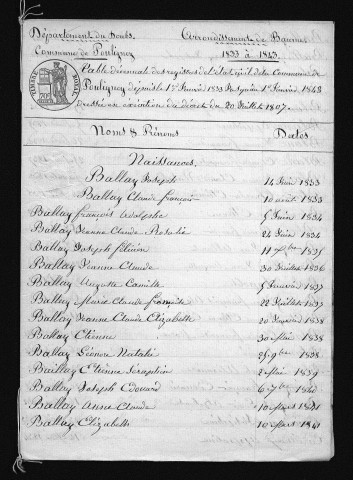 Département du Doubs. Arrondissement de Baume
Commune de Pouligney 1833 à 1843.
TIMBRE ROYAL
Table Décennale des registres de l'état civil de la Commune de
Pouligney depuis le 1er Janvier 1833 jusqu'au 1er Janvier 1843
Dressée en exécution du décret du 20 Juillet 1807.
Noms & Prénoms Dates
Naissances,
Ballay Joseph 14 Juin 1833
Ballay Claude françois 10 août 1833
Ballay françois Adolphe 5 Juin 1834
Ballay Jeanne Claude Rosalie 24 Juin 1834
Ballay Joseph félicien 11 9bre 1835
Ballay Jeanne Claude 30 Juillet 1836
Ballay Auguste Camille 5 Janvier 1837
Ballay Marie Claude 22 Juillet 1837
Ballay Jeanne Claude Elizabeth 20 Janvier 1838
Ballay Etienne 30 Mai 1838
Ballay Léonore Natalie 25 9bre 1838
Ballay Etienne Séraphin 2 Mai 1839
Ballay Joseph Edouard 6 7bre 1840
Ballay Anne Claude 10 Mars 1841
Ballay Elizabeth 10 Mars 1841